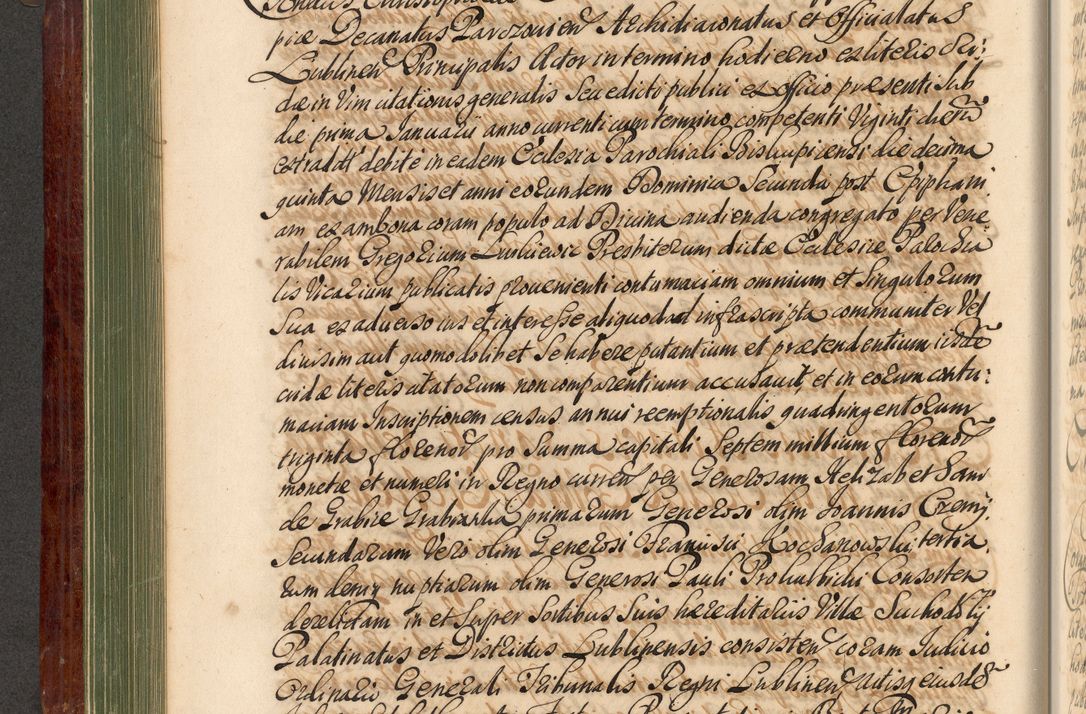 piæ Decanatus Parczovien Archidiaconatus et Officialatus
Lublinen Principalis Actor in termino hodierno ex literis Eri:
dæ in Vim citationis generalis Seu edicti publici ex Officio præsenti Sub
die prima Januarii anno currenti cum termino competenti Viginti dierum
extradatt debite in eadem Ecclesia Parochiali Biskupicensi die decima
quinta Mensis et anni eorundem Dominica Secunda post Epiphani
am ex ambona coram populo ad Divina audienda congregato per Vene
rabilem Gregorium Presbiterum dictæ Ecclesiæ Parochia
lis Vicarium publicatis provenienti contumaciam omnium et Singulorum
Sua ex adverso ius et interesse aliquod ad infrascripta communiter Vel
divisim aut quomodolibet Se habere putantium et prætendentium iisde
literis citatorum non comparentium accusavit, et in eorum contu:
maciam Inscriptionem census annui reemptionalis quadringentorum
triginta florenor pro Summa capitali Septem millium florenor
monetæ et numeri in Regno curren per Generosam Helizabetham
de Grabice primarum Generosi olim Joannis
Secundarum Vero olim Generosi Francisci Kochanowski tertia
rum demų nuptiarum olim Generosi Pauli Consorten
derelictam in et Super Sortibus Suis hæreditariis Villæ
Palatinatus et Districtus Lublinensis consisten coram Judicio
Ordinario Generali Tribunalis Regni Lublinen